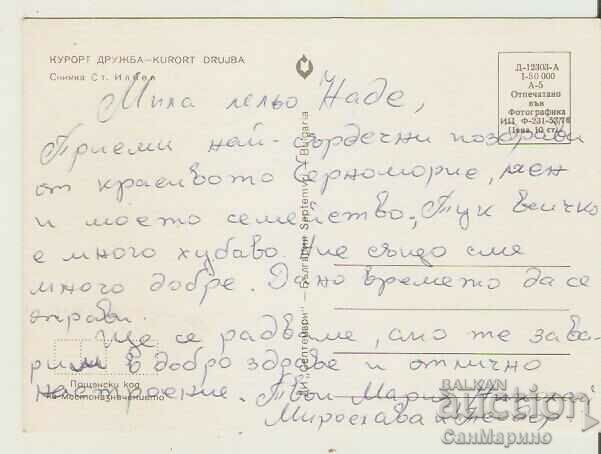 КУРОРТ ДРУЖБА–KURORT DRUJBA
Снимка Ст. Илиев
Д-12303-А
1-50 000
А-5
Отпечатано
във
Фотографика
ИП Ф-231-53/76
Цена 10 ст.
Мила лельо Наде,
Приеми най-сърдечни поздрави
от красивото Черноморие, мен
и моето семейство. Тук всичко
е много хубаво. Ние също сме
много добре. Дано времето да се
оправи.
Ще се радваме, ако те зава-
рим в добро здраве и отлично
настроение. Твои Мария,
Мирослава и
Пощенски код
на местоназначението
„Септември" – България Septemvri – Bulgaria
BALKAN
auction
СанМарино